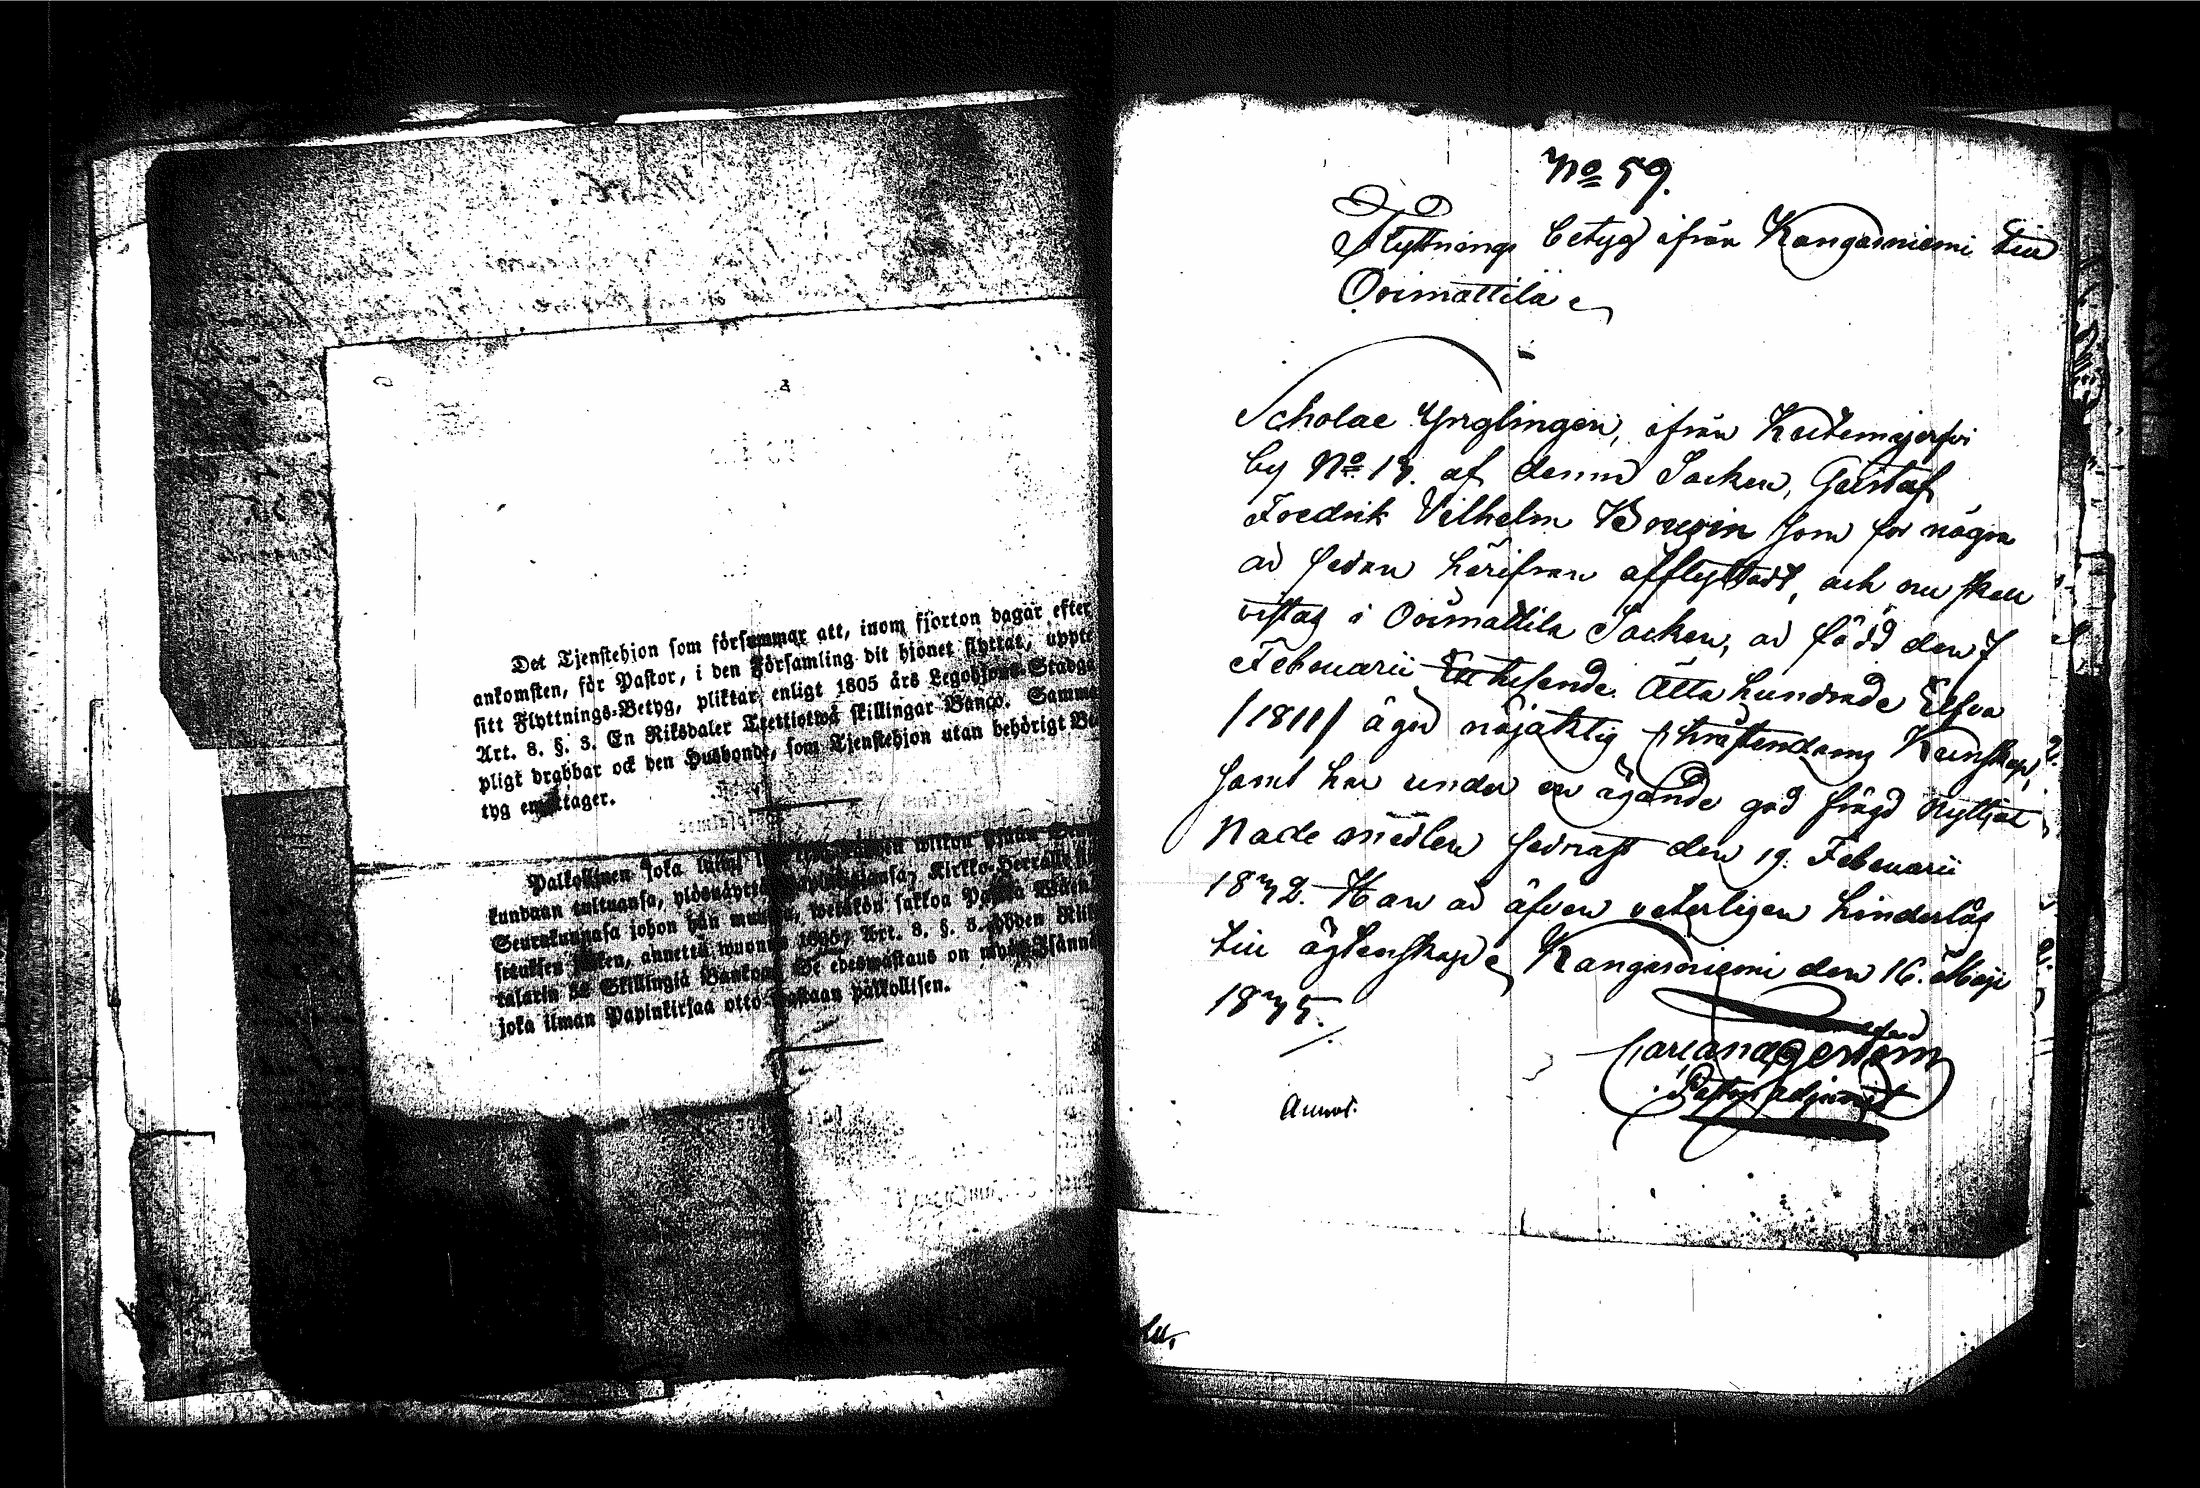 Det Tjenstehjon som försummar att, inom fjorton dagar efter
ankomsten, för Pastor, i den Församling dit hjonet flyttat, uppte
sitt Flyttnings-Betyg, pliktar enligt 1805 års Legohjons-Stadga
Art. 8. §. 3. En Riksdaler Trettiotwå skillingar Banco. Samma
pligt drabbar ock den Husbonde, som Tjenstehjon utan behörigt Be
tyg emottager.
Palkollinen joka
kundaan tultuansa, Kirkko-Herralle
Seurakunnasa johon hän muutta, wetäkön sakkoa
annettu wuonna 1805, Art. 8. §. 3. Yhden Riik
talarin 32 Skillingiä Bankoa. Se edeswastaus on myös Isännä
joka ilman Papinkirjaa otto wastaan palkollisen.
No 59.
Flyttnings betyg ifrån Kangasniemi till
Orimattila
Scholae Ynglingen, ifrån Kutemajerfvi
by No 17. af denna Socken, Gustaf
Fredrik Vilhelm som för några
år sedan härifrån afflyttadt, och nu skall
vistas i Orimattila Socken, är född den 7
Februarii Ett tusende Åtta hundrade Elfva
/1811/ äger nöjaktig Christendoms Kunskap,
samt har under en ägande god frägd nyttjat
Nademedlen sednast den 19. Februarii
1832. Han är äfven veterligen hinderlös
till ägtenskap Kangasniemi den 16. Maji
1835.
Pastors adjunct
Annot.